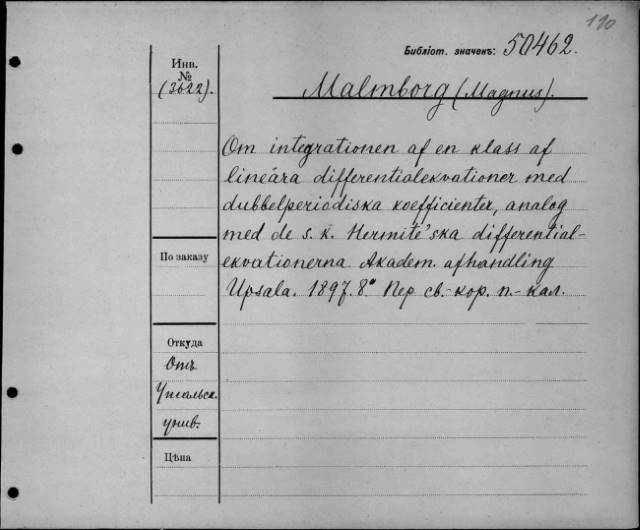 110
Библіот. значенъ: 50462.
Инв.
№
(3622).
Malmborg (Magnus).
Om integrationen af en klass af
lineära differentialekvationer med
dubbelperiodiska koefficienter, analog
med de s. k. Hermite'ska differential-
ekvationerna Akadem. afhandling
Upsala. 1897. 8° Пер св.-кор. п.- кал.
По заказу
Откуда
Отъ
Упсальск.
унив.
Цѣна